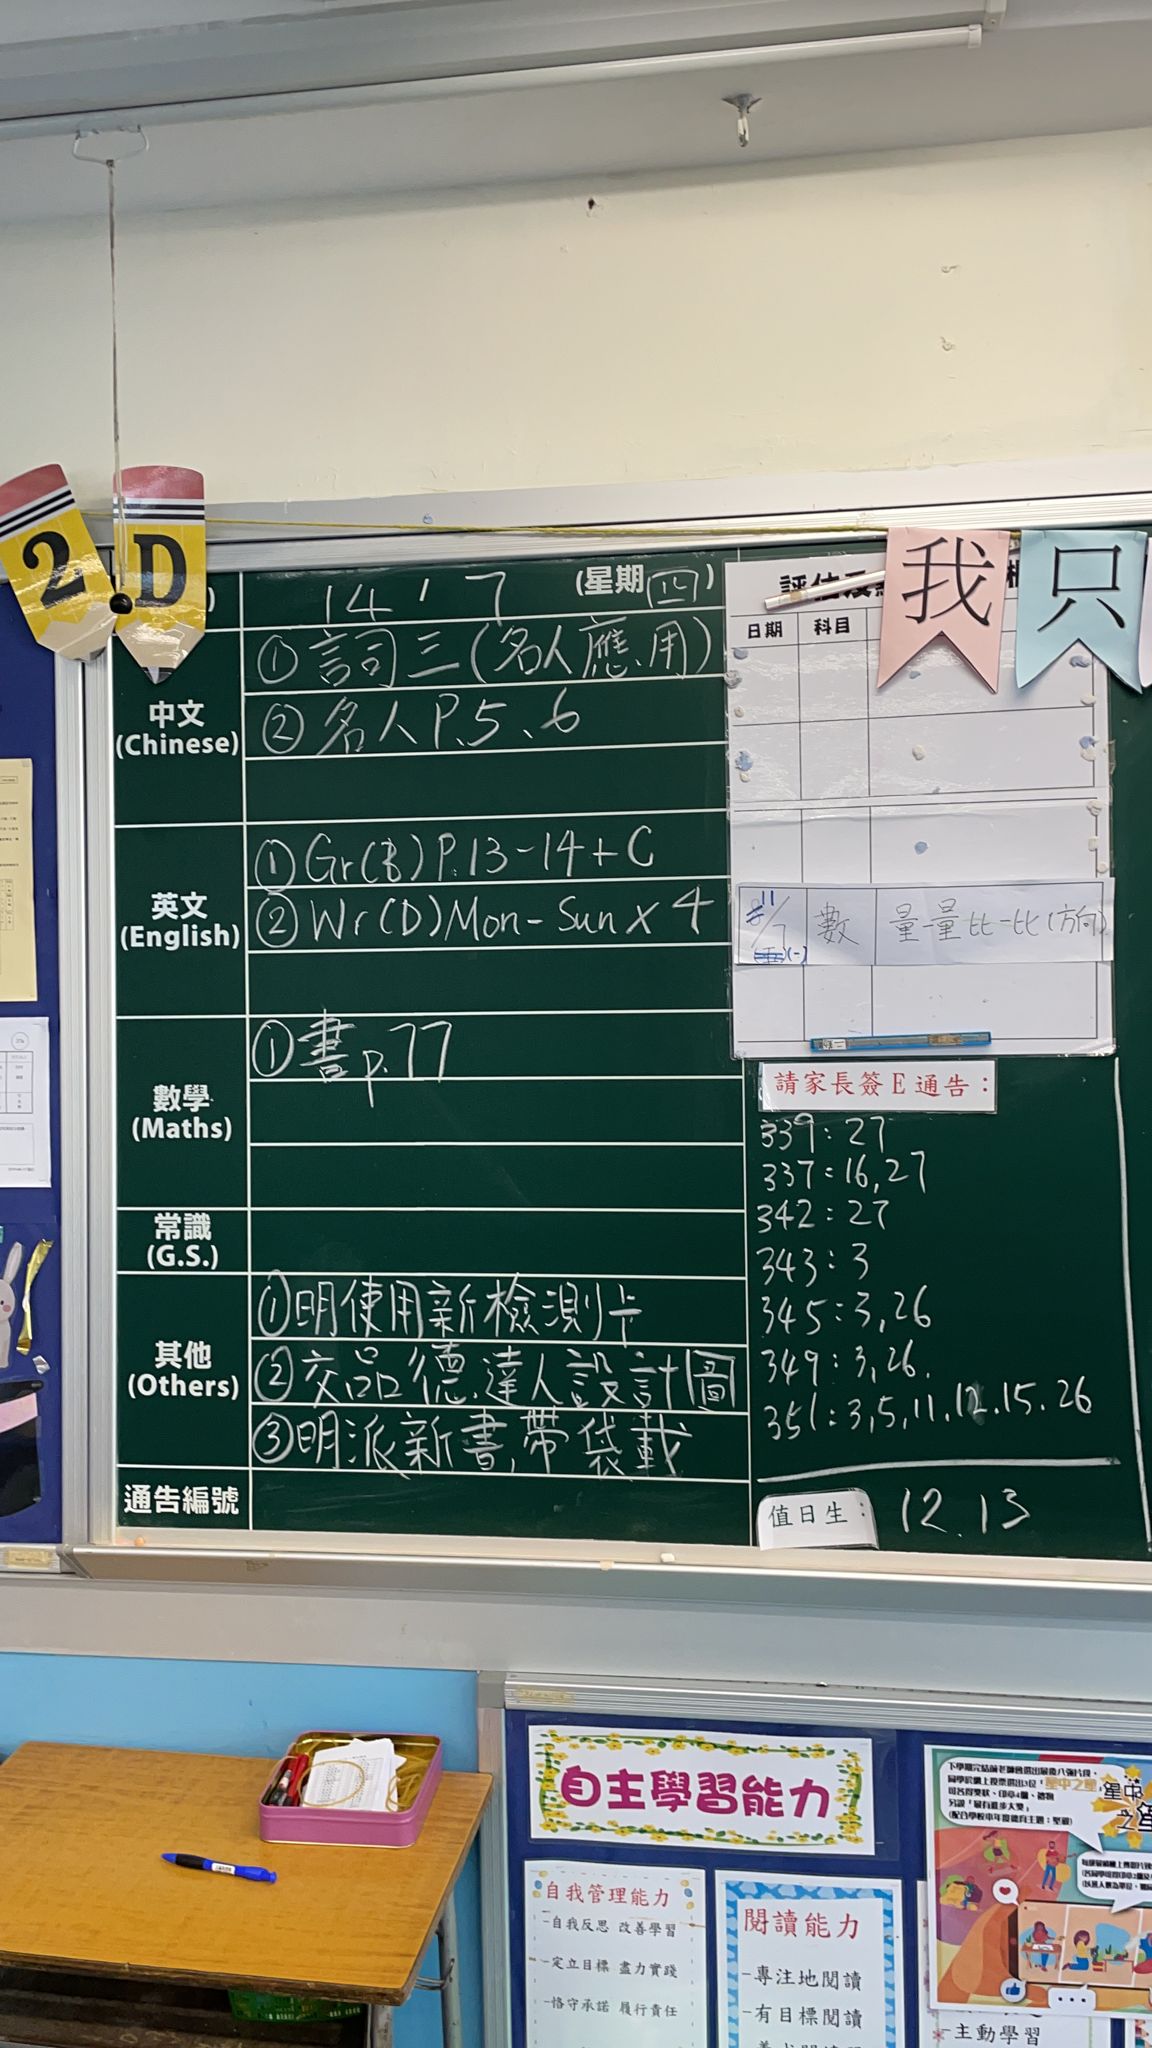 2 D
14 ' 7 (星期四)
中文
(Chinese)
① 詞三(名人應用)
② 名人P.5、6
英文
(English)
① Gr(B) P.13-14+C
② Wr(D) Mon-Sun x 4
數學
(Maths)
① 書p.77
常識
(G.S.)
其他
(Others)
①明使用新檢測卡
②交品德達人設計圖
③明派新書,帶袋載
通告編號
我 只
日期 科目
11/7 (一) 數 量一量比一比(方向)
請家長簽E通告:
339: 27
337: 16,27
342: 27
343: 3
345: 3,26
349: 3,26.
351: 3,5,11.12.15.26
值日生: 12.13
自主學習能力
自我管理能力
-自我反思 改善學習
-定立目標 盡力實踐
-恪守承諾 履行責任
閱讀能力
-專注地閱讀
-有目標閱讀
-主動學習